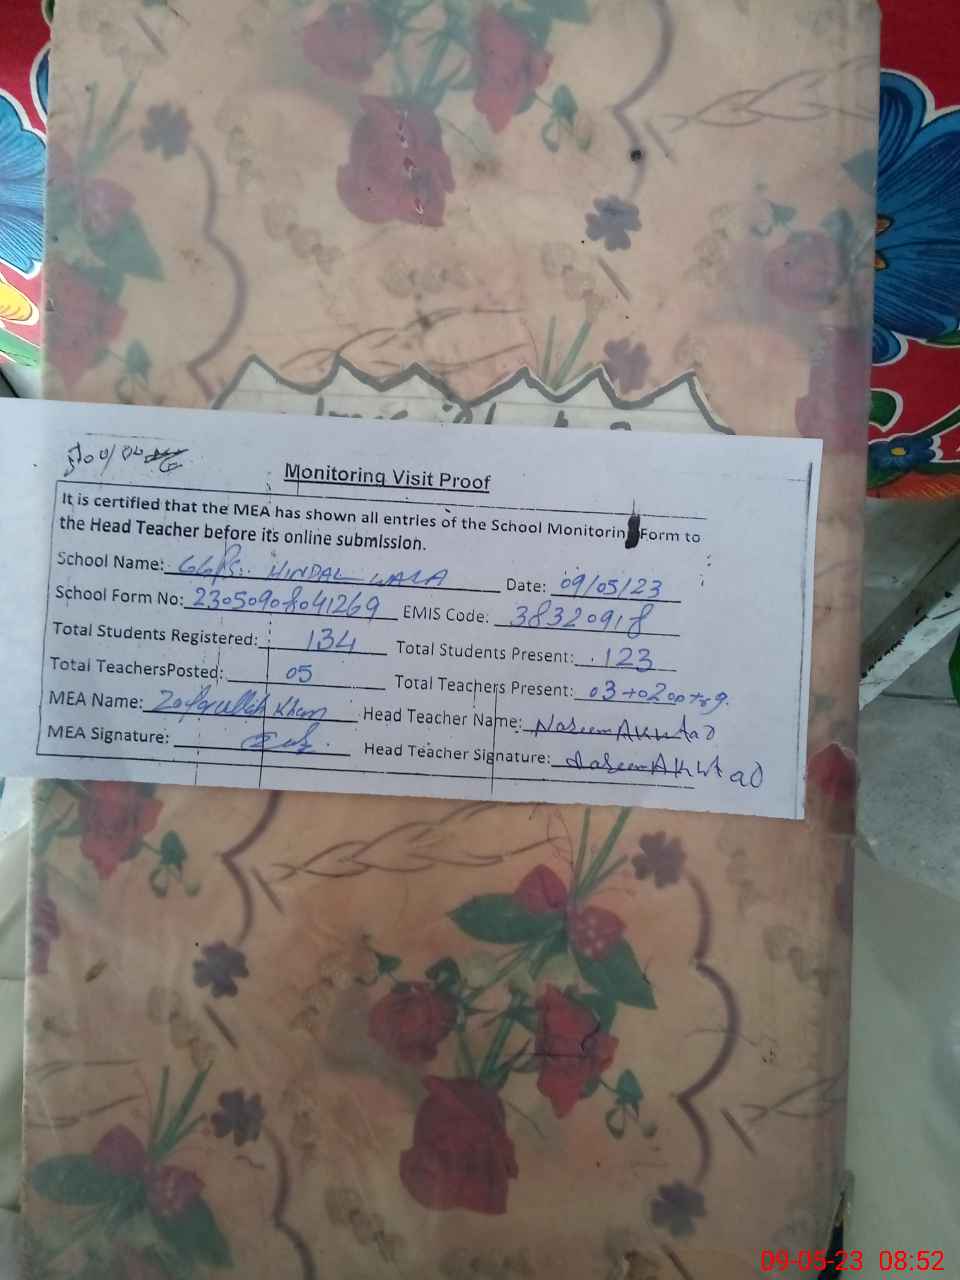 Monitoring Visit Proof
It is certified that the MEA has shown all entries of the School Monitorin Form to
the Head Teacher before its online submission.
School Name: GGPS. HINDAL WALA Date: 09/05/23
School Form No: 23050908041269 EMIS Code: 38320918
Total Students Registered: 134 Total Students Present: 123
Total TeachersPosted: 05 Total Teachers Present: 03+02
MEA Name: Zafarullah Khan Head Teacher Name: Naseem Akhtar
MEA Signature: Head Teacher Signature: Naseem Akhtar
09-05-23 08:52